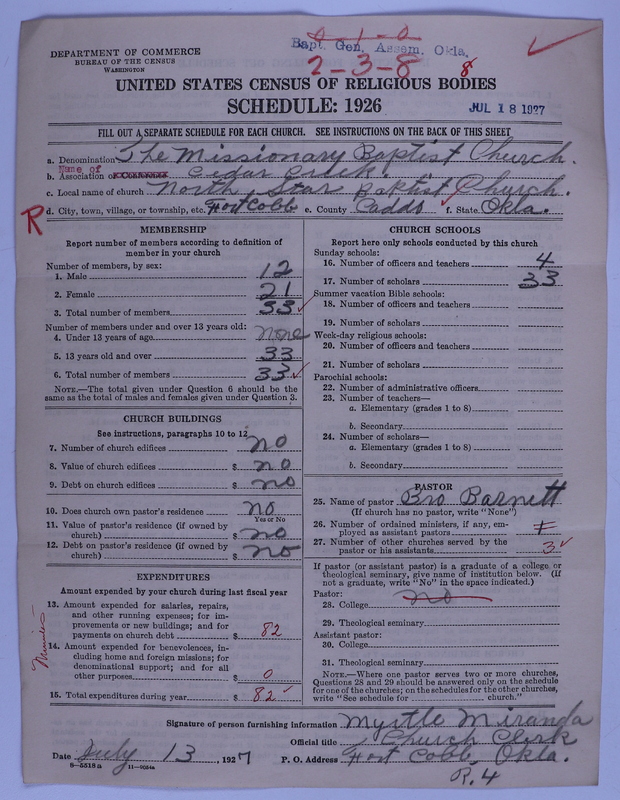 Bapt. Gen. Assem. Okla.
2-3-8 8
DEPARTMENT OF COMMERCE
BUREAU OF THE CENSUS
WASHINGTON
UNITED STATES CENSUS OF RELIGIOUS BODIES
SCHEDULE: 1926
JUL 18 1927
FILL OUT A SEPARATE SCHEDULE FOR EACH CHURCH. SEE INSTRUCTIONS ON THE BACK OF THIS SHEET
a. Denomination The Missionary Baptist Church.
Name of
b. Association or Cedar Creek.
c. Local name of church North Star Baptist Church.
R d. City, town, village, or township, etc. Fort Cobb e. County Caddo f. State Okla.
MEMBERSHIP
Report number of members according to definition of
member in your church
Number of members, by sex:
1. Male 12
2. Female 21
3. Total number of members 33
Number of members under and over 13 years old:
4. Under 13 years of age None
5. 13 years old and over 33
6. Total number of members 33
NOTE.—The total given under Question 6 should be the
same as the total of males and females given under Question 3.
CHURCH BUILDINGS
See instructions, paragraphs 10 to 12
7. Number of church edifices no
8. Value of church edifices $ no
9. Debt on church edifices $ no
10. Does church own pastor's residence no
Yes or No
11. Value of pastor's residence (if owned by
church) $ no
12. Debt on pastor's residence (if owned by
church) $ no
EXPENDITURES
Amount expended by your church during last fiscal year
13. Amount expended for salaries, repairs,
and other running expenses; for im-
provements or new buildings; and for
payments on church debt $ 82
14. Amount expended for benevolences, in-
cluding home and foreign missions; for
denominational support; and for all
other purposes $ 0
15. Total expenditures during year $ 82
CHURCH SCHOOLS
Report here only schools conducted by this church
Sunday schools:
16. Number of officers and teachers 4
17. Number of scholars 33
Summer vacation Bible schools:
18. Number of officers and teachers
19. Number of scholars
Week-day religious schools:
20. Number of officers and teachers
21. Number of scholars
Parochial schools:
22. Number of administrative officers
23. Number of teachers—
a. Elementary (grades 1 to 8)
b. Secondary
24. Number of scholars—
a. Elementary (grades 1 to 8)
b. Secondary
PASTOR
25. Name of pastor Bro Barnett
(If church has no pastor, write "None")
26. Number of ordained ministers, if any, em-
ployed as assistant pastors
27. Number of other churches served by the
pastor or his assistants 3
If pastor (or assistant pastor) is a graduate of a college or
theological seminary, give name of institution below. (If
not a graduate, write "No" in the space indicated.)
Pastor:
28. College no
29. Theological seminary
Assistant pastor:
30. College
31. Theological seminary
NOTE.—Where one pastor serves two or more churches,
Questions 28 and 29 should be answered only on the schedule
for one of the churches; on the schedules for the other churches,
write "See schedule for church."
Signature of person furnishing information Myrtle Miranda
Official title Church Clerk
Date July 13, 1927 P. O. Address Fort Cobb, Okla.
8-5518a 11-9054a
R. 4